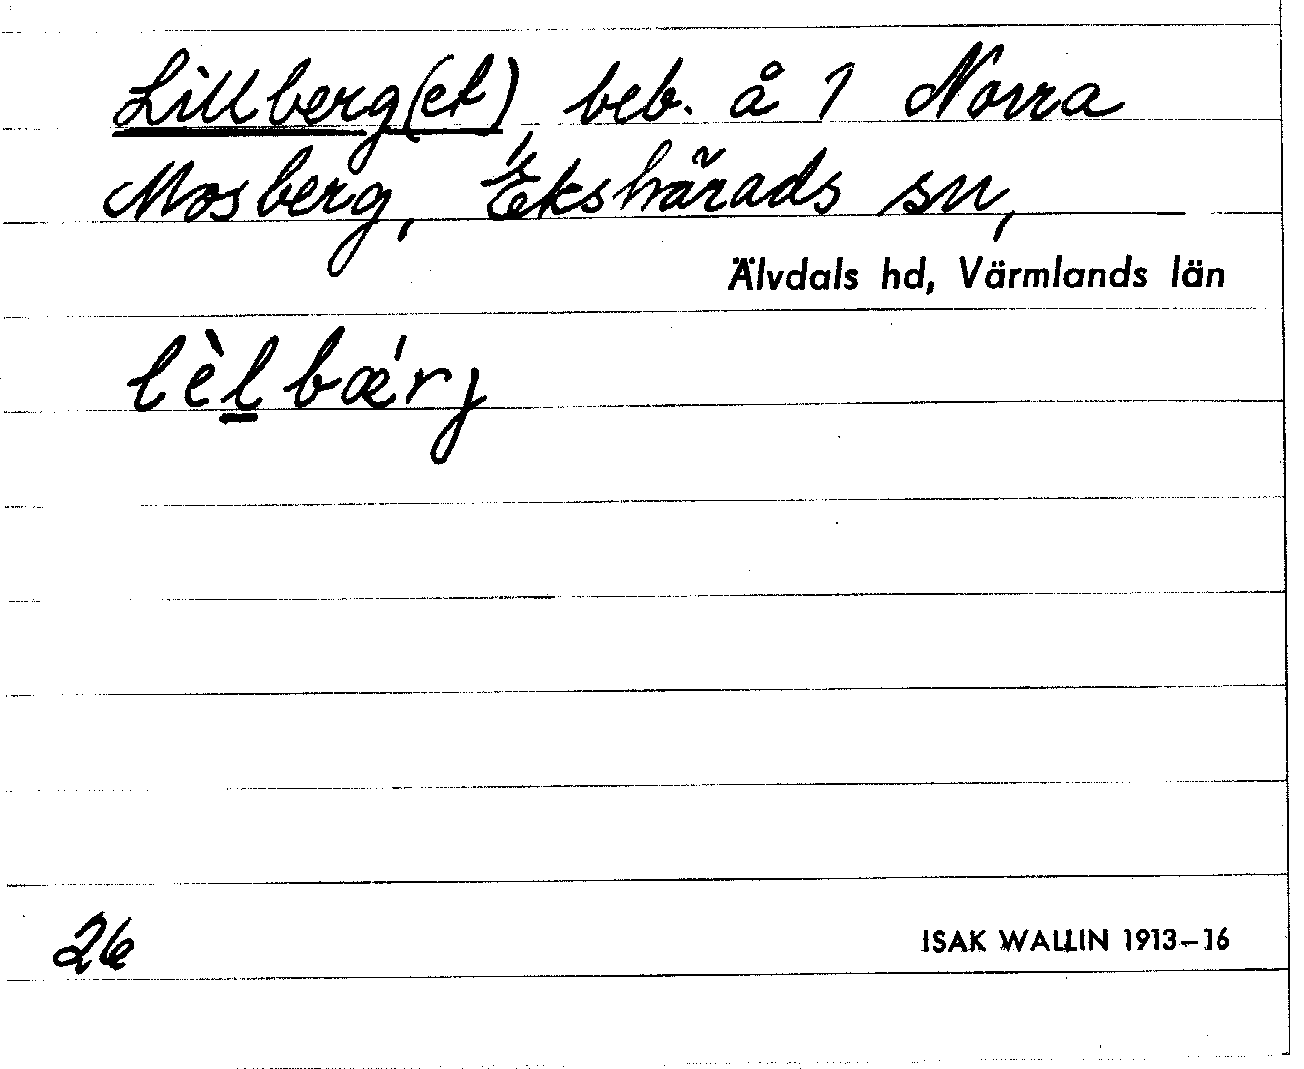 Lillberg(et), beb. å 1 Norra
Mosberg, Ekshärads sn,
Älvdals hd, Värmlands län
lèlbǽrj
26
ISAK WALLIN 1913–16